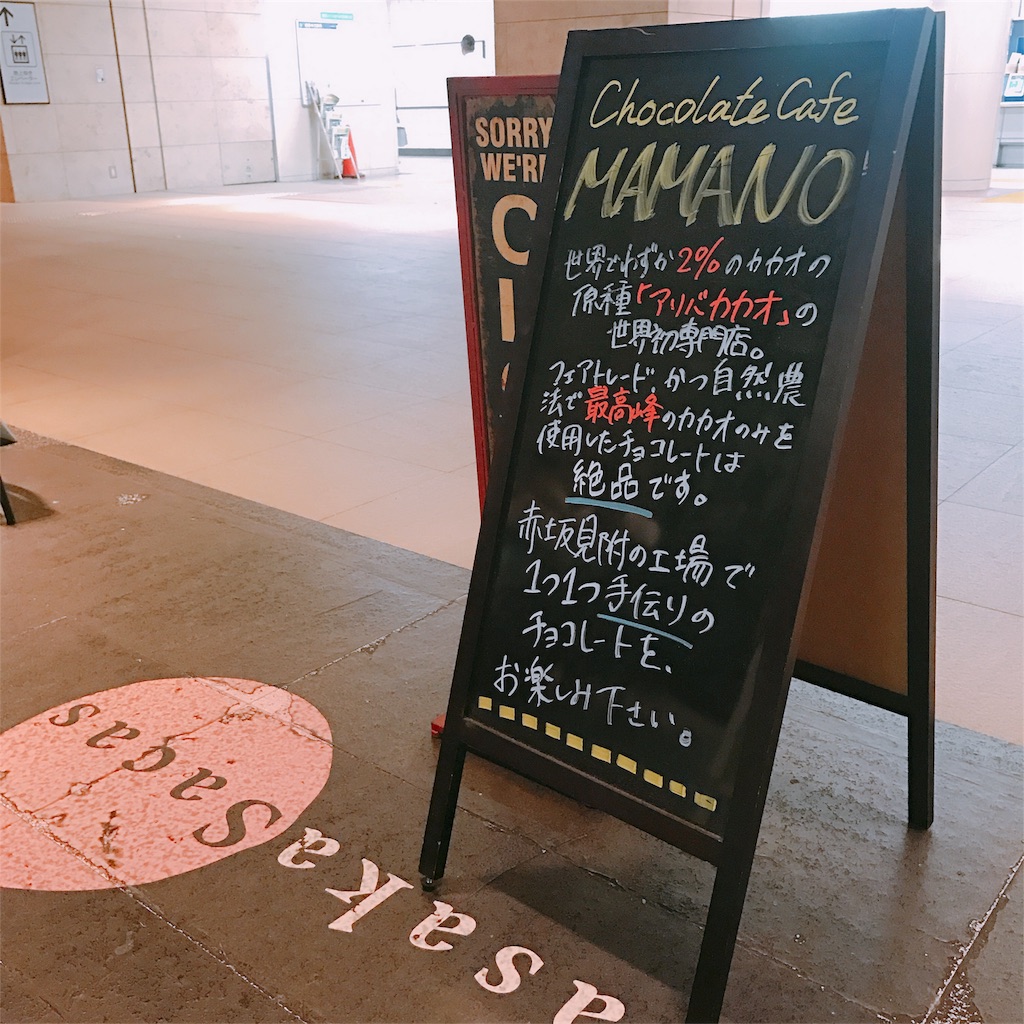 Chocolate Cafe
MAMANO
世界でわずか2%のカカオの
原種「アリバカカオ」の
世界初専門店。
フェアトレード、かつ自然農
法で最高峰のカカオのみを
使用したチョコレートは
絶品です。
赤坂見附の工場で
1つ1つ手伝りの
チョコレートを、
お楽しみ下さい。
SORRY
WE'RE
Sacas
Sakas